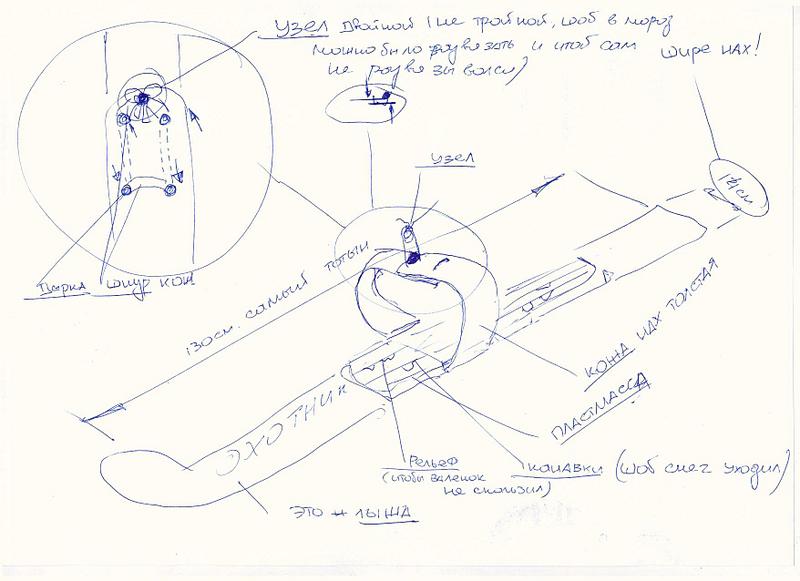 УЗЕЛ двойной (не тройной, шоб в мороз
можно было развезать и чтоб сам
не развезыволси)
шире нах!
узел
14см
Дырка шнур кож
130см. самый тотын
кожа нах толстая
Пластмасса
Охотник
Рельеф
(чтобы валенок
не скользил)
Канавки (шоб снег уходил)
это - лыжа